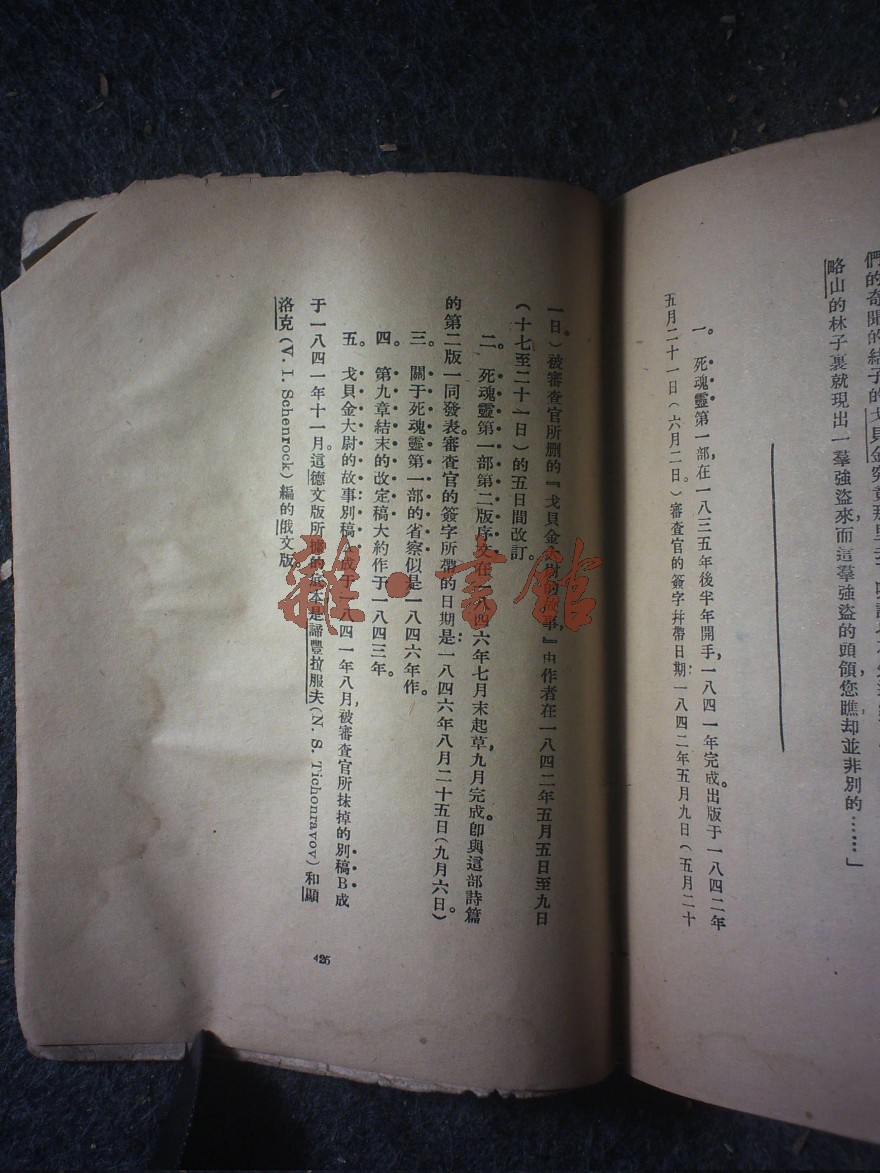 略山的林子裏就現出一羣強盜來而這羣強盜的頭領，您瞧却並非別的……」
一。　死魂靈第一部，在一八三五年後半年開手，一八四一年完成。出版于一八四二年
五月二十一日（六月二日。）審查官的簽字幷帶日期：一八四二年五月九日（五月二十
一日。）被審查官所删的『戈貝金大尉的故事』，由作者在一八四二年五月五日至九日
（十七至二十一日）的五日間改訂。
二。　死魂靈第一部第二版序文在一八四六年七月末起草，九月完成。卽與這部詩篇
的第二版一同發表。審查官的簽字所帶的日期是：一八四六年八月二十五日（九月六日。）
三。　關于死魂靈第一部的省察似是一八四六年作。
四。　第九章結末的改定稿大約作于一八四三年。
五。　戈貝金大尉的故事別稿：A成于一八四一年八月，被審查官所抹掉的別稿B成
于一八四一年十一月。這德文版所據的底本是諦豐拉服夫（N. S. Tichonravov）和顯
洛克（V. I. Schenrock）編的俄文版。
425
雜·書館